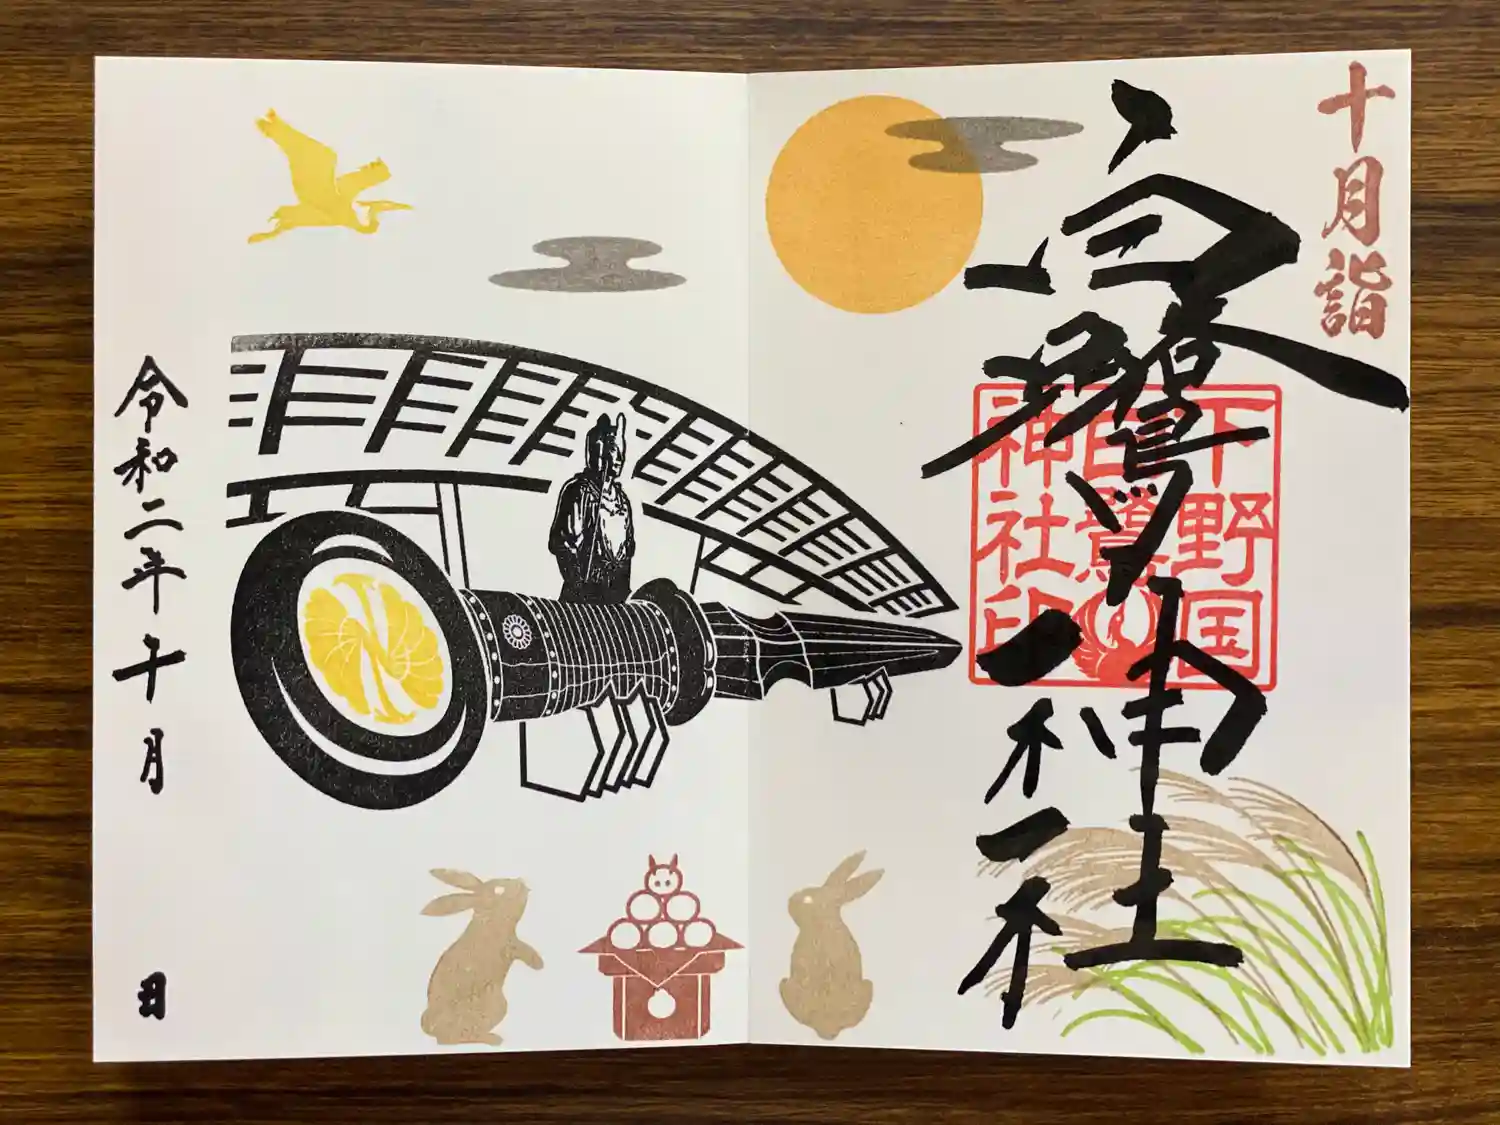 十月詣
白鷺神社
下野国
白鷺
神社印
令和二年十月 日